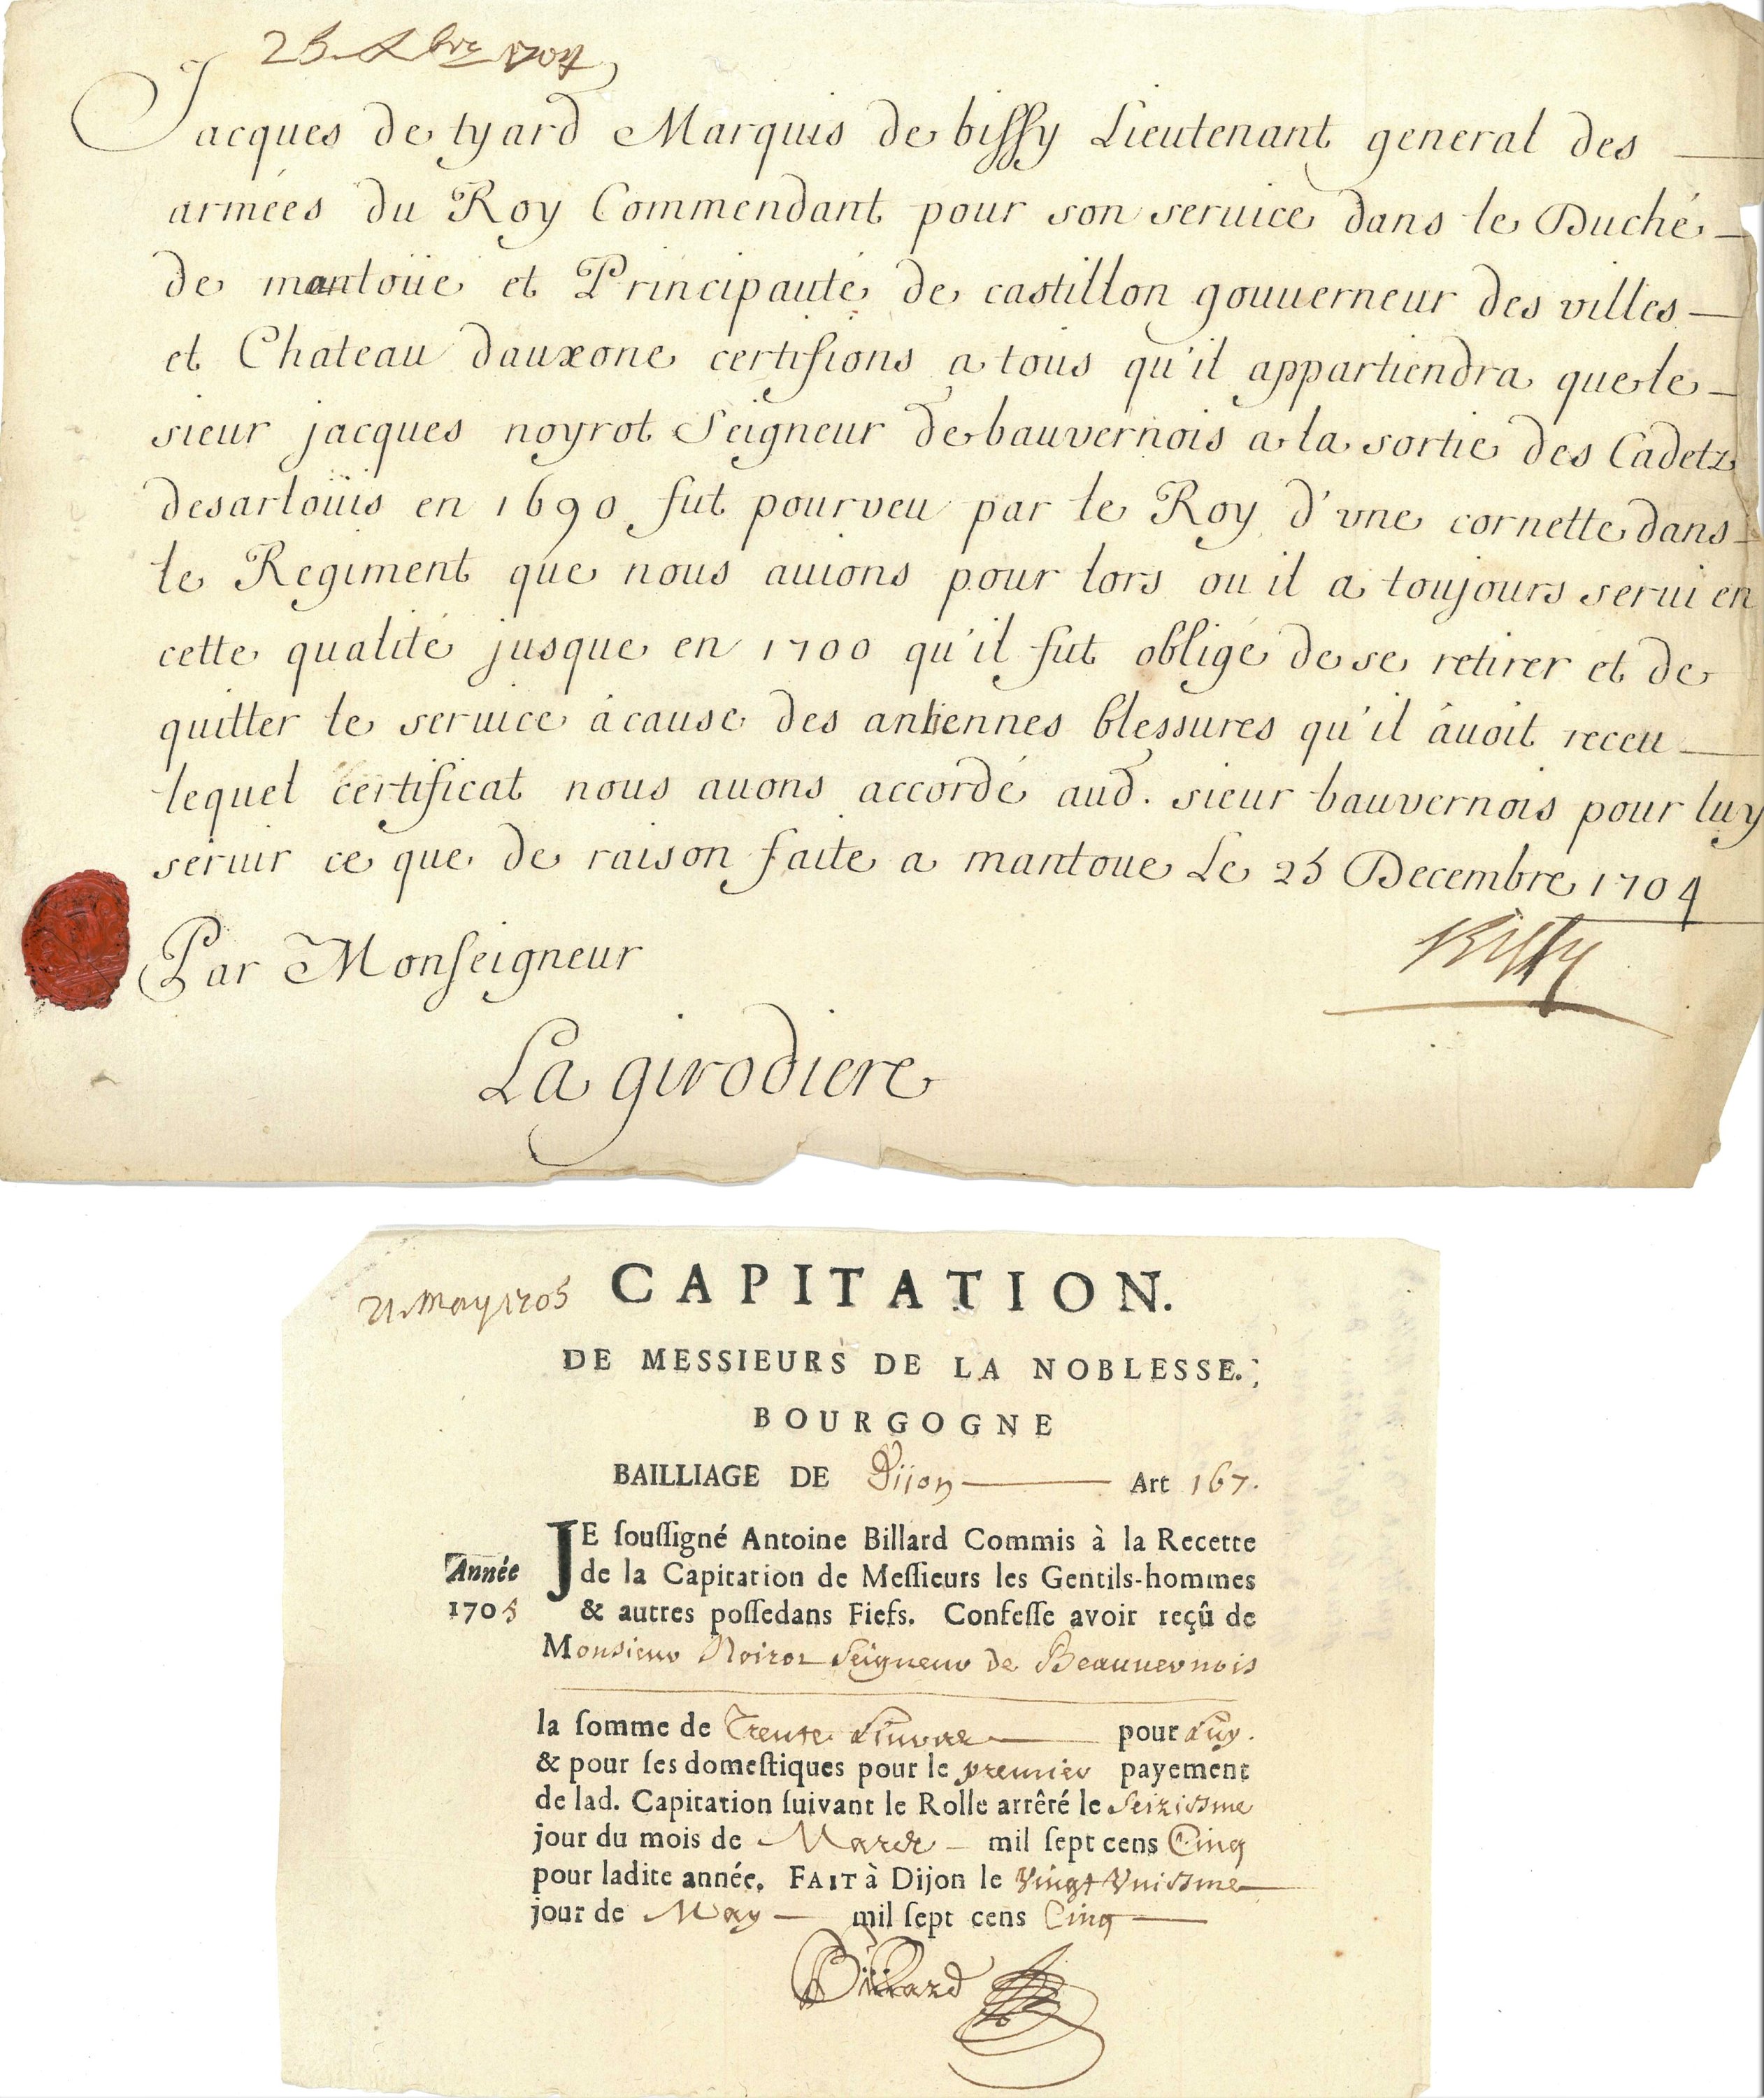 25 Xbre 1704
Jacques de tyard Marquis de bissy Lieutenant general des
armées du Roy Commendant pour son seruice dans le Duché
de mantoüe et Principauté de castillon gouuerneur des villes
et Chateau dauxone certifions a tous qu'il appartiendra que le
sieur jacques noyrot Seigneur de bauvernois a la sortie des Cadetz
desarloüis en 1690 fut pourveu par le Roy d'vne cornette dans
le Regiment que nous auions pour lors ou il a toujours serui en
cette qualité jusque en 1700 qu'il fut obligé de se retirer et de
quitter le seruice à cause des antiennes blessures qu'il âuoit receu
lequel certificat nous auons accordé aud. sieur bauvernois pour luy
seruir ce que de raison faite a mantoue Le 25 Decembre 1704
Bissy
Par Monseigneur
La girodiere
21. May 1705
CAPITATION.
DE MESSIEURS DE LA NOBLESSE.
BOURGOGNE
BAILLIAGE DE Dijon Art 167.
Année
1705
JE soussigné Antoine Billard Commis à la Recette
de la Capitation de Messieurs les Gentils-hommes
& autres possedans Fiefs. Confesse avoir reçû de
Monsieur Noirot Seigneur de Beauuernois
la somme de Trente Liuvre pour Luy.
& pour ses domestiques pour le premier payement
de lad. Capitation suivant le Rolle arrêré le Seizisme
jour du mois de Mars mil sept cens Cinq
pour ladite année. FAIT à Dijon le Vingt Vnisme
jour de May mil sept cens Cinq
Billard